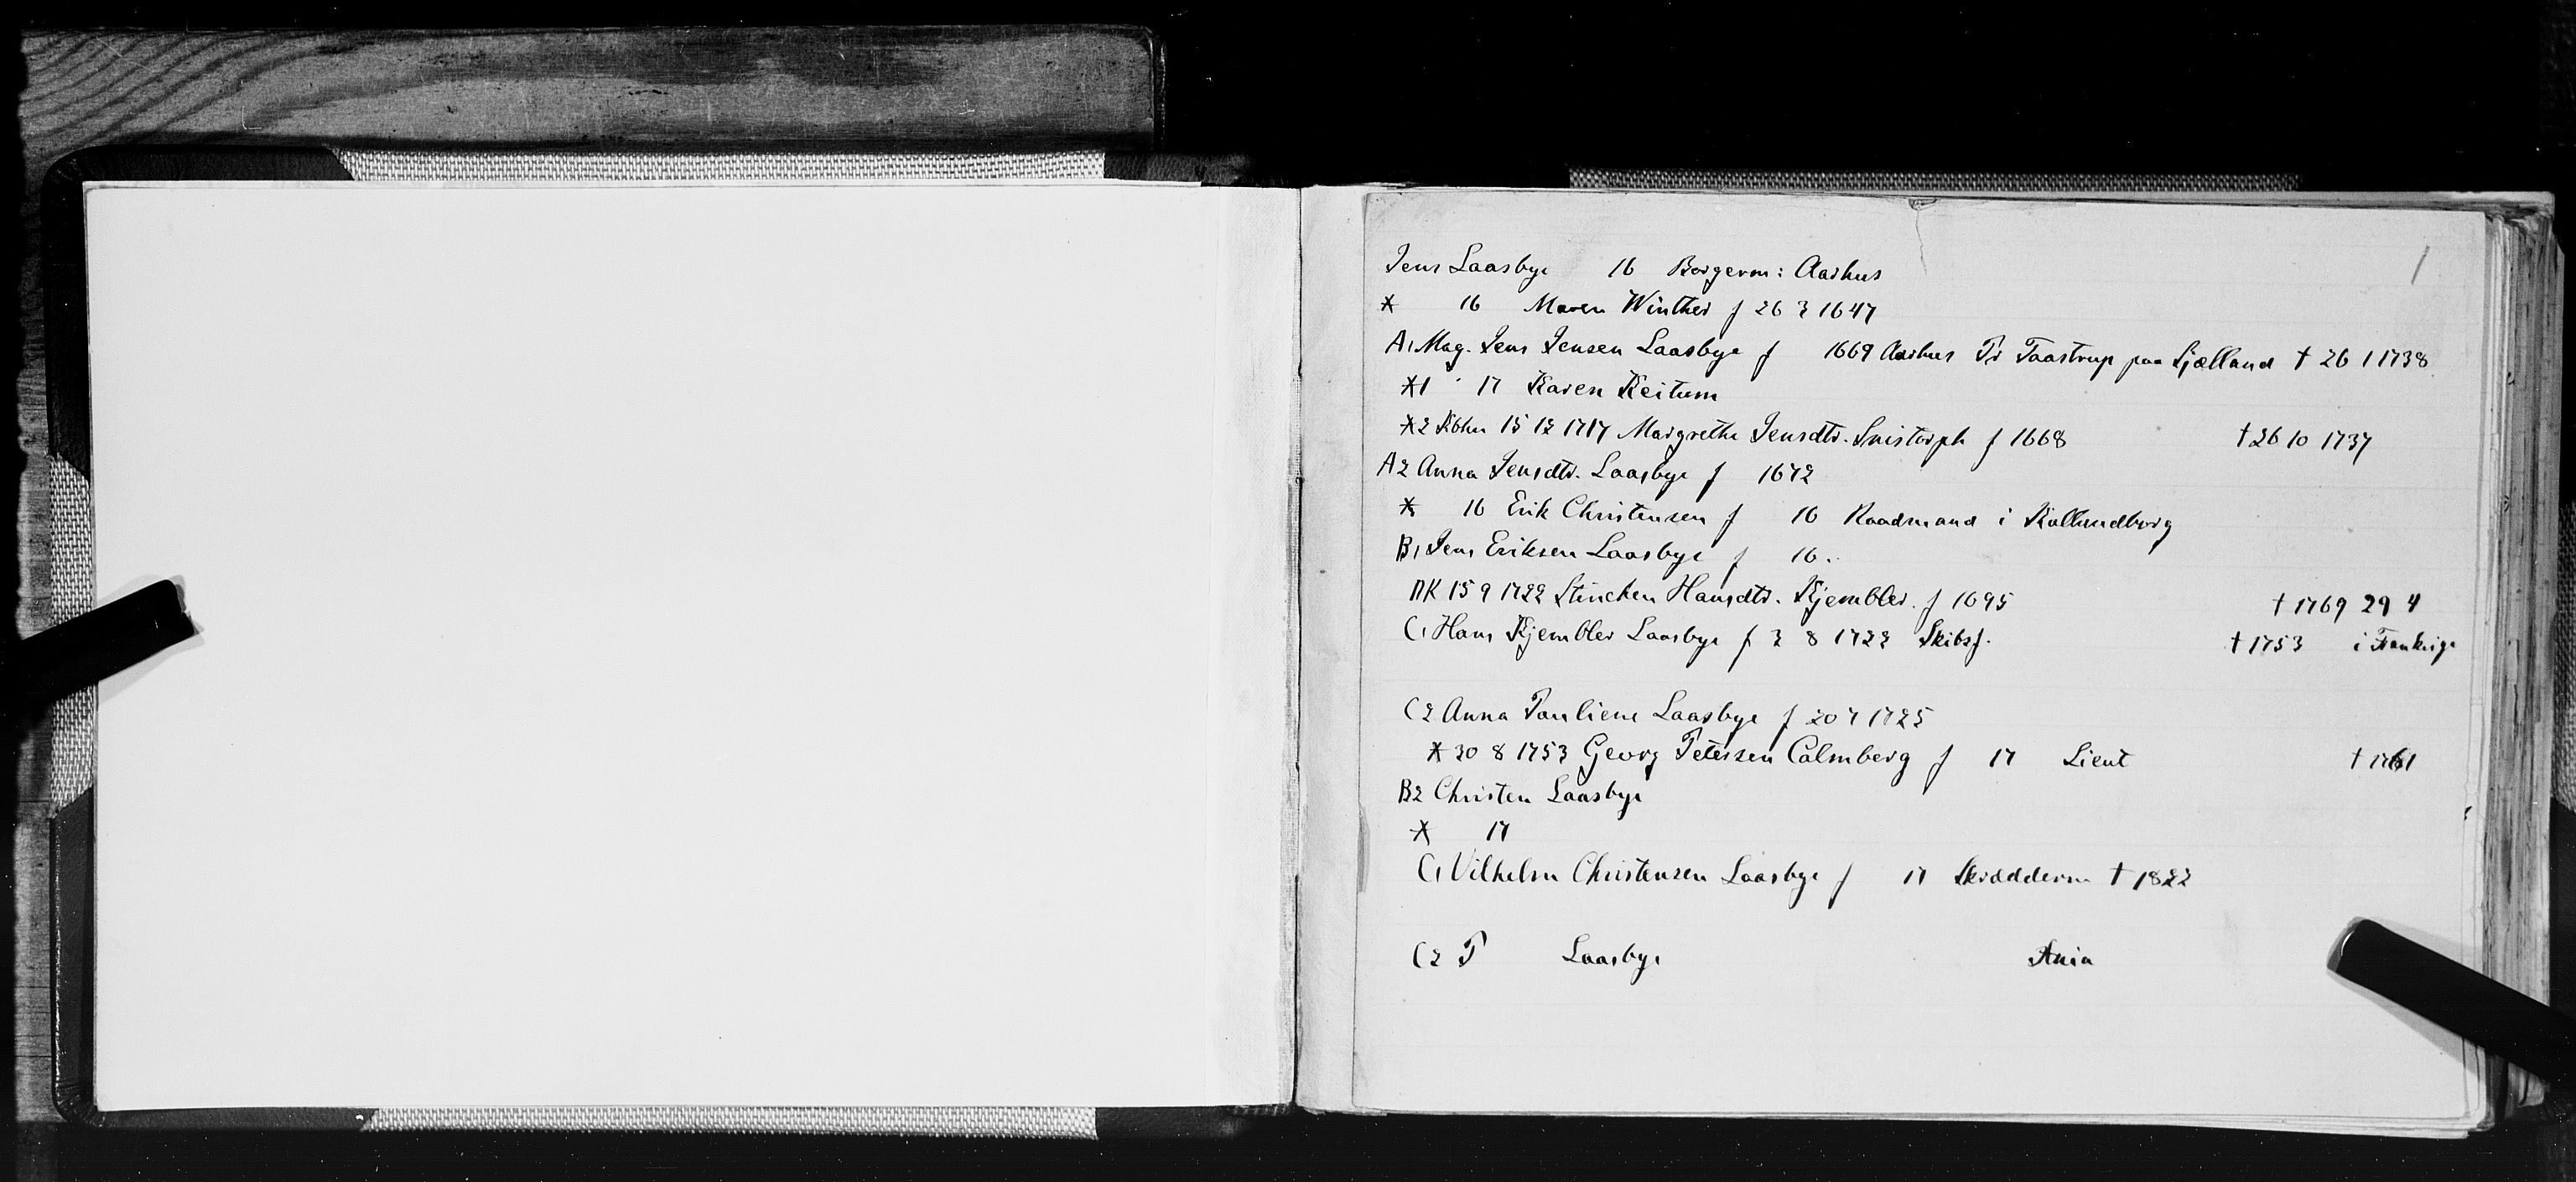 1
Jens Laasbye 16 Borgerm: Aarhus
* 16 Maren Winther f 26 3 1647
A1 Mag. Jens Jensen Laasbye f 1669 Aarhus Pr Taastrup paa Sjælland † 26 1 1738
*1 17 Karen Keitum
*2 Kbhn 15 12 1717 Margrethe Jensdtr. Snistorph f 1668 † 26 10 1737
A2 Anna Jensdtr. Laasbye f 1672
* 16 Erik Christensen f 16 Raadmand i Kallundborg
B1 Jens Eriksen Laasbye f 16.
NK 15 9 1722 Stinchen Hansdtr. Kjembler. f 1695 † 1769 29 4
C1 Hans Kjembler Laasbye f 3 8 1723 Skibsf. † 1753 i Frankrige
C2 Anna Pauliene Laasbye f 20 7 1725
* 30 8 1753 Georg Petersen Calmberg f 17 Lieut † 1761
B2 Christen Laasbye
* 17
C1 Vilhelm Christensen Laasbye f 17 Skrædderm † 1822
C2 P Laasbye